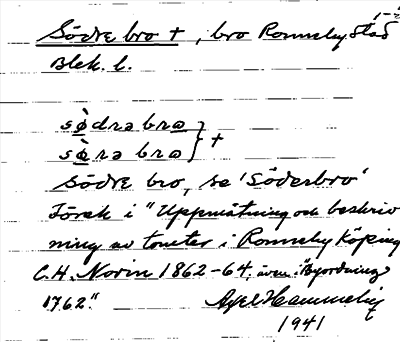 Södre bro +, bro Ronneby stad
Blek. l.
sø̀drə brɷ
sø̀rə brɷ } +
Södre bro, se 'Söderbro'
Förek i "Uppmätning och beskriv
ning av tomter i Ronneby Köping
C.H. Norin 1862-64, även i "Byordning
1762".
Axel Hemmeling
1941